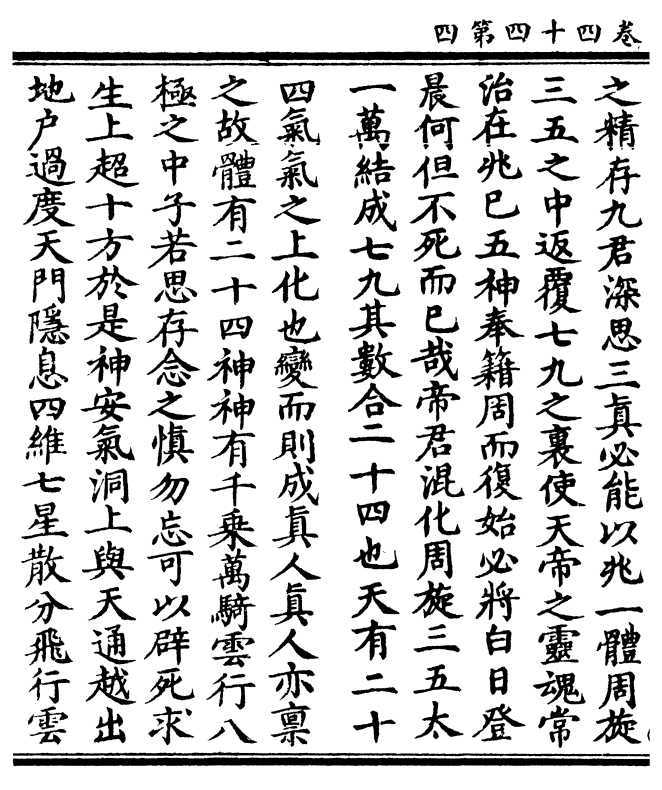 卷四十四第四
之精存九君深思三眞必能以兆一體周旋
三五之中返覆七九之裏使天帝之靈魂常
治在兆巳五神奉籍周而復始必將白日登
晨何但不死而巳哉帝君混化周旋三五太
一萬結成七九其數合二十四也天有二十
四氣氣之上化也變而則成眞人眞人亦稟
之故體有二十四神神有千乗萬騎雲行八
極之中子若思存念之慎勿忘可以辟死求
生上超十方於是神安氣洞上與天通越出
地户過度天門隱息四維七星散分飛行雲